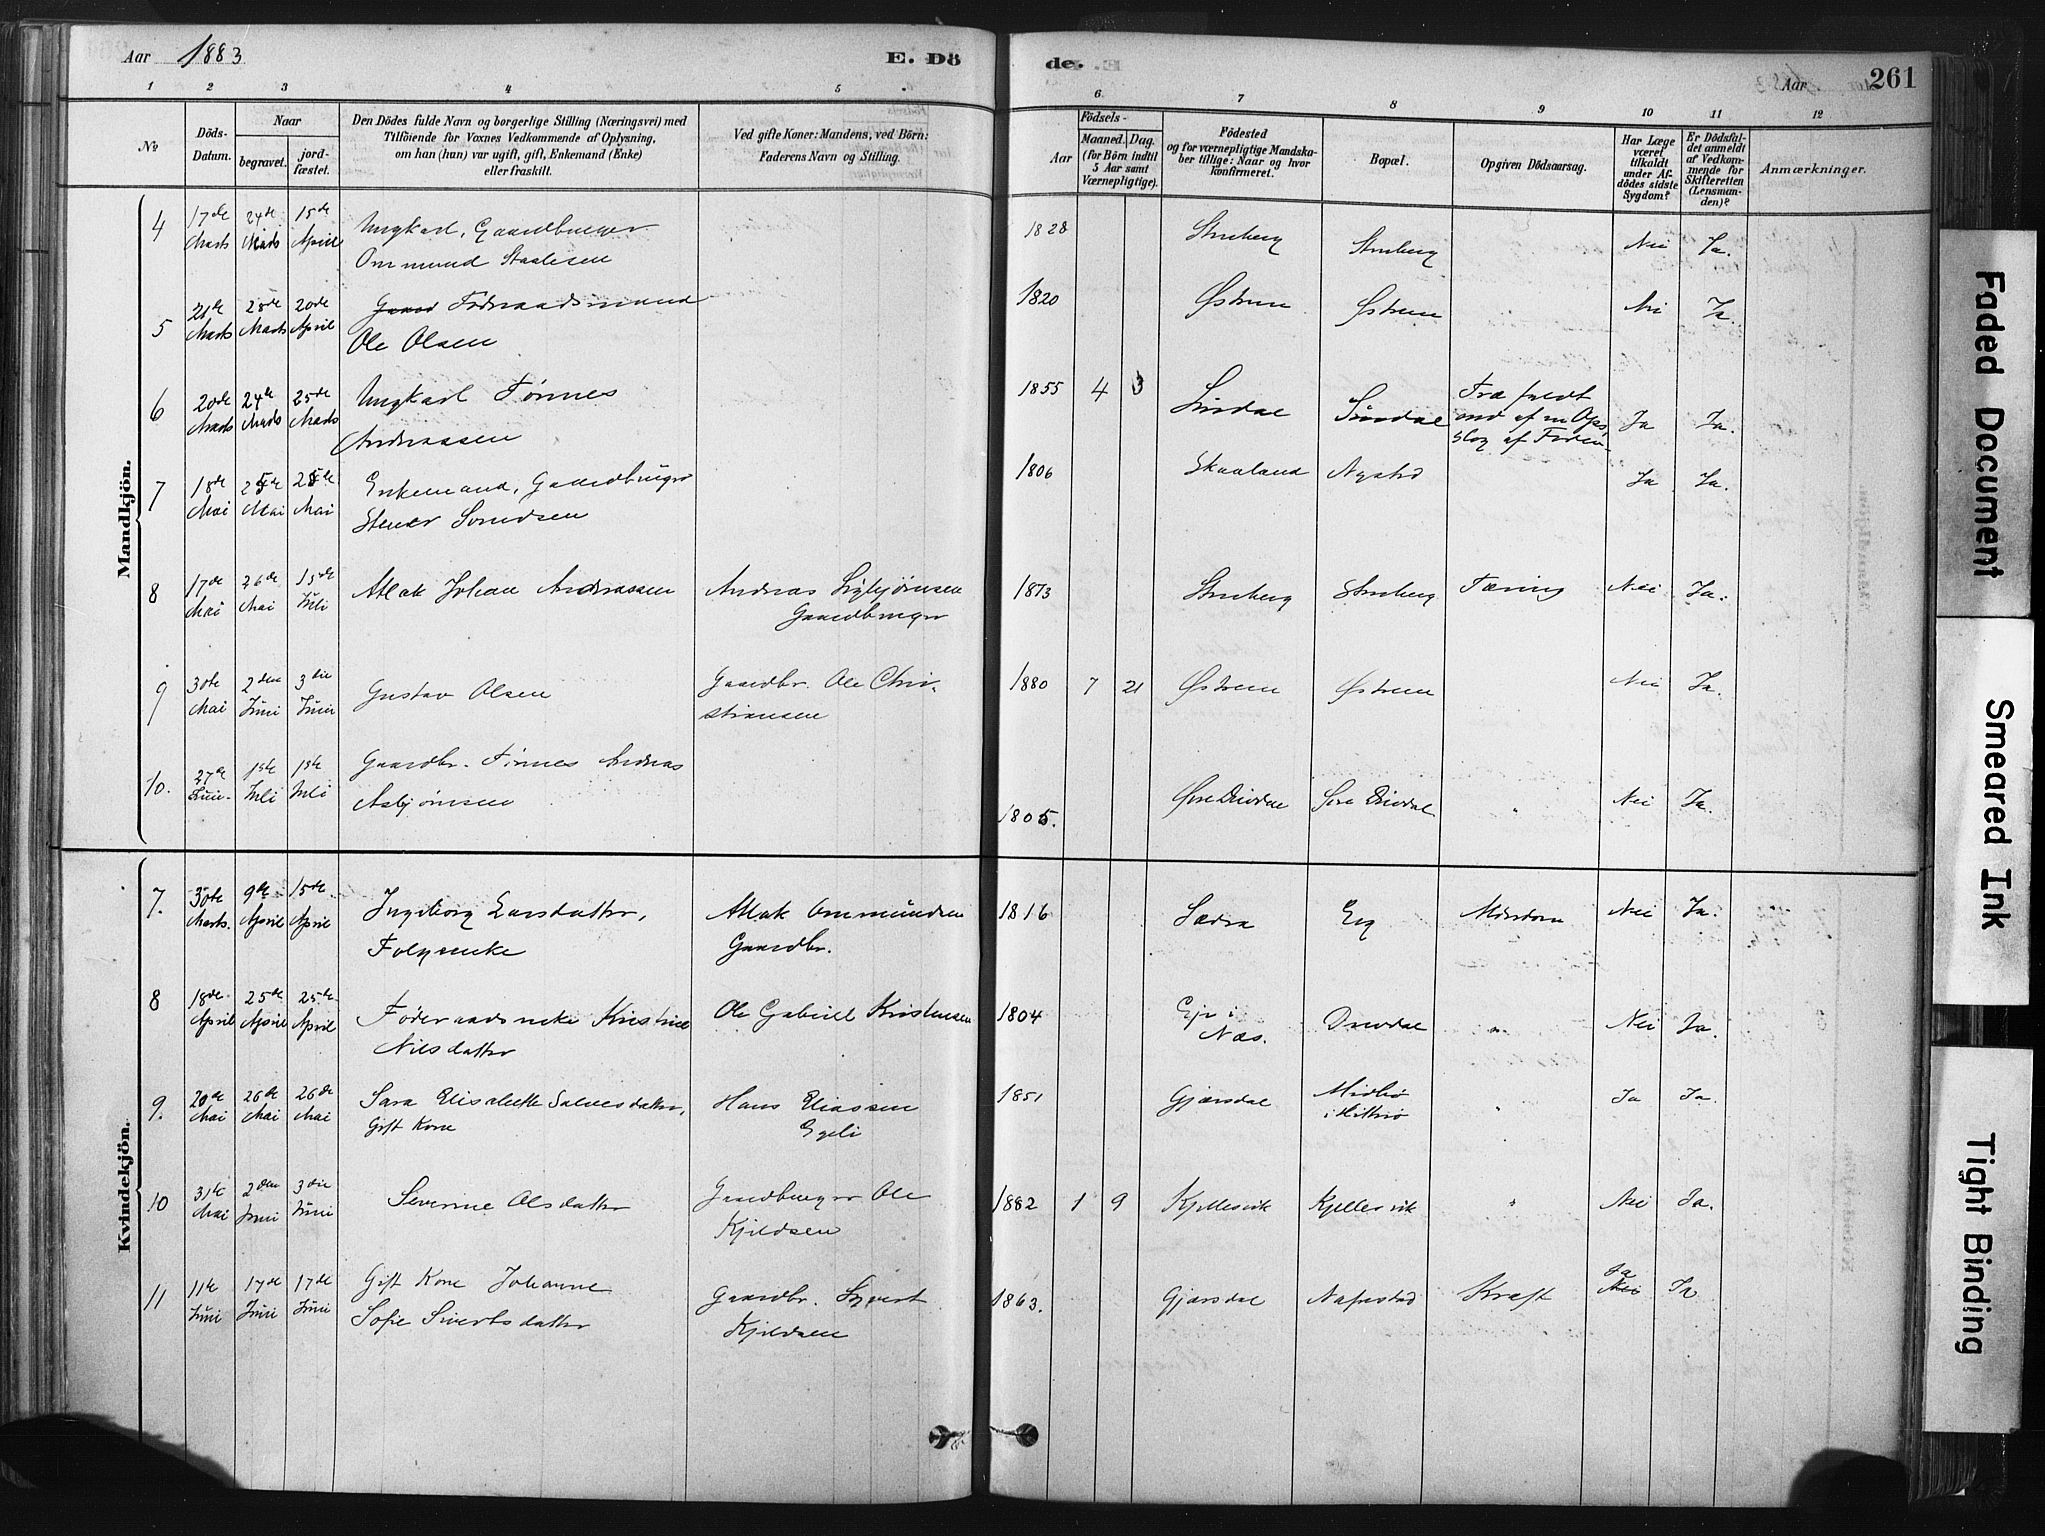 Aar 1883 E. Dö
de. Aar 261
1 2 3 4 5
6 7 8 9 10 11 12
No
Döds-
Datum.
Naar
begravet.
jord-
fæstet.
Den Dödes fulde Navn og borgerlige Stilling (Næringsvei) med
Tilföiende for Voxnes Vedkommende af Oplysning,
om han (hun) var ugift, gift, Enkemand (Enke)
eller fraskilt.
Ved gifte Koner: Mandens, ved Börn:
Faderens Navn og Stilling.
Födsels-
Aar
Maaned. Dag.
(for Börn indtil
5 Aar samt
Værnepligtige).
Födested
og for værnepligtige Mandska-
ber tillige: Naar og hvor
konfirmeret.
Bopæl.
Opgiven Dödsaarsag.
Har Læge
været
tilkaldt
under Af-
dödes sidste
Sygdom?
Er Dödsfal-
det anmeldt
af Vedkom-
mende for
Skifteretten
(Lensman-
den)?
Anmærkninger.
Mandkjön.
4 17de Marts 24de Marts 15de April
Ungkarl, Gaardbruger
Ommund Staalesen
1828 Nei Ja.
5 Marts 28de Marts 20de April
Gaard Föderaadsmand
Ole Olsen
1820 Østrem Østrem Nei Ja.
6 20de Marts 24de Marts 25de Marts
Ungkarl Tønnes
Andreassen
1855 4 3 Ja Ja.
7 18de Mai 25de Mai 25de Mai
Enkemand, Gaardbruger
1806 Skaaland Nystad Ja Ja.
8 17de Mai 26de Mai 15de Juli
Atlak Johan Andreassen
Andreas Sigbjørnsen
Gaardbruger
1873 Tæring Nei Ja.
9 30te Mai 2den Juni 3die Juni
Gustav Olsen
Gaardbr. Ole Chri-
stiansen
1880 7 21 Østrem Østrem Nei Ja.
10. 27de Juni 1ste Juli 1ste Juli
Gaardbr. Tønnes Andreas
Asbjørnsen
1805. Nei Ja.
Kvindekjön.
7. 30te Marts. 9de April 15de April
Ingeborg Larsdatter,
Atlak Ommundsen
Gaardbr.
1816 Eeg Nei Ja.
8 18de April 25de April 25de April
Føderaadsenke Kristine
Nilsdatter
Ole Gabriel Kristensen
1804 Eje i
Næs. Drivdal " Nei Ja.
9. 20de Mai 26de Mai 26de Mai
Sara Elisabeth Salvesdatter,
Gift Kone
Hans Eliassen
Egeli
1851 Gjersdal Midbø
i Hitterø " Ja Ja.
10 31te Mai 2den Juni 3die Juni
Severine Olsdatter
Gaardbruger Ole
Kjeldsen
1882 1 9 Kjellesvik Kjellesvik " Nei Ja.
11 11te Juni 17de Juni 17de Juni
Gift Kone Johanne
Sofie Sivertsdatter
Gaardbr. Syvert
Kjeldsen
1863. Gjersdal Kræft Ja
Nei Ja
Faded Document
Smeared Ink
Tight Binding